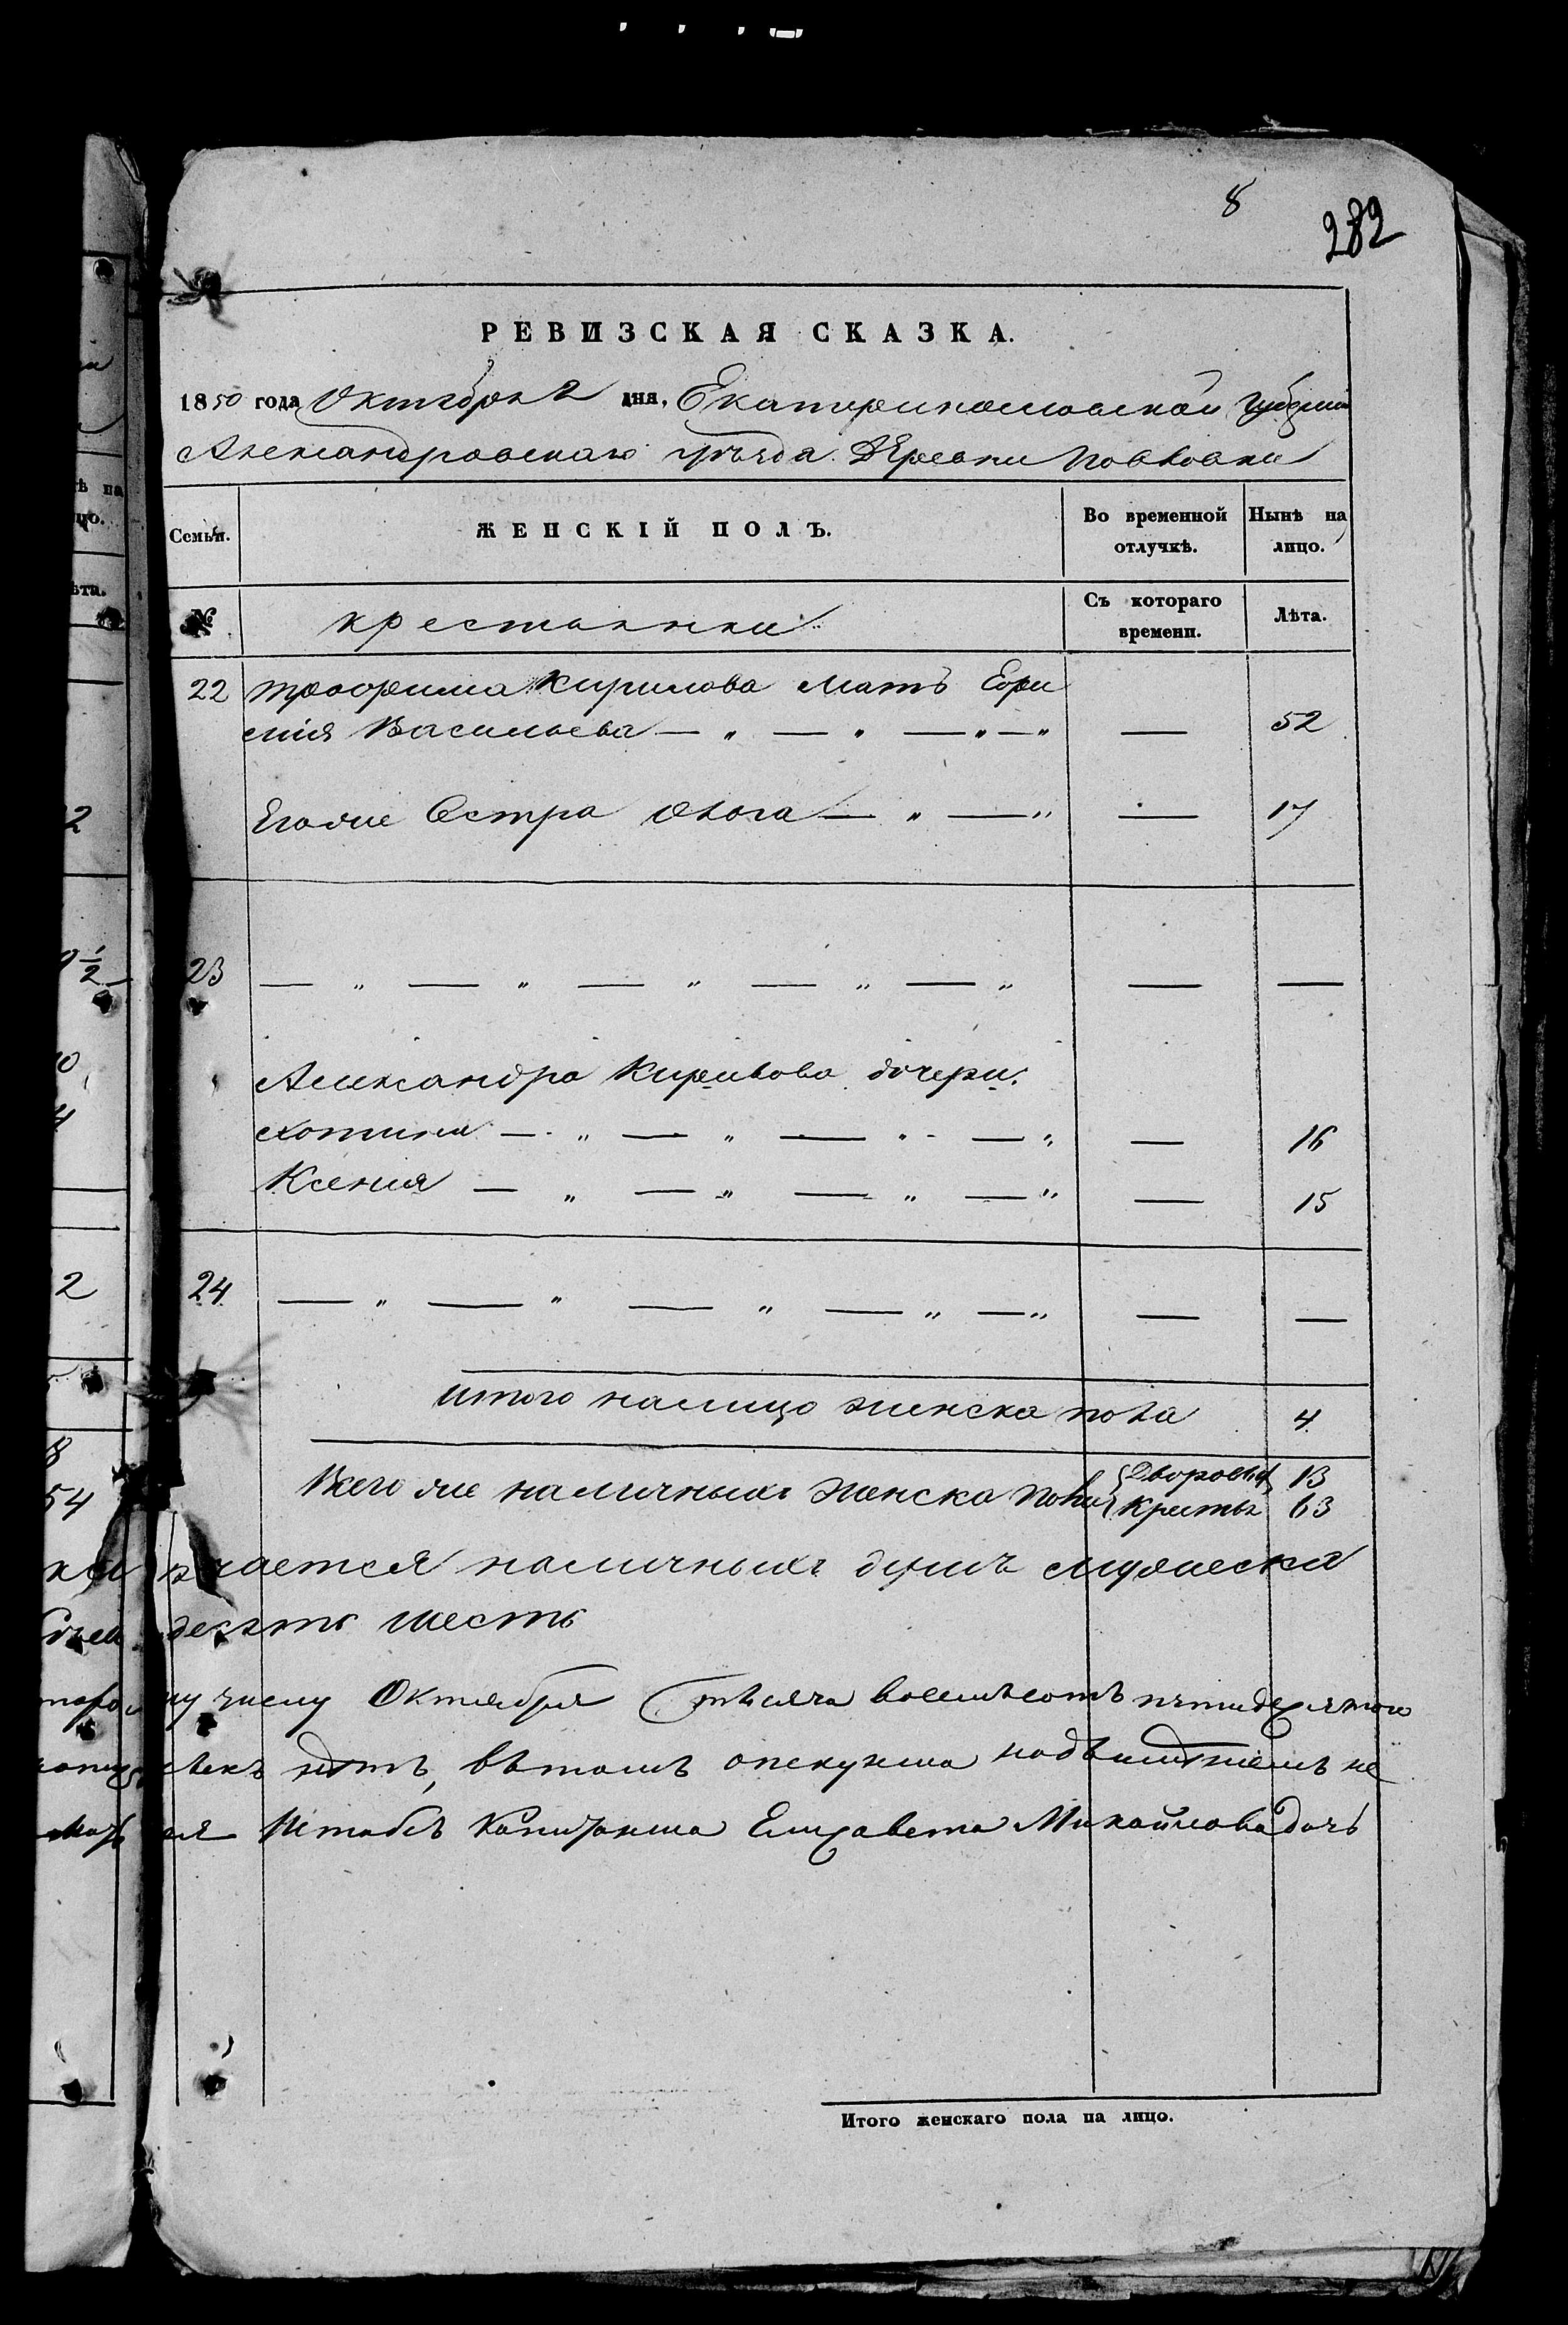 8
282
РЕВИЗСКАЯ СКАЗКА.
1850 года Октября 2 дня, Екатеринославской Губерніи
Александровскаго уѣзда Деревни Повловки
Семьи. ЖЕНСКІЙ ПОЛЪ. Во временной отлучкѣ. Нынѣ на лицо.
№ крестьянки Съ котораго времени. Лѣта.
22 трофима Кирилова мать Ефи
мія Васильева — „ — „ — „ — „ — 52
Егоже Сестра Олга — „ — „ — 17
23 — „ — „ — „ — „ — „ — —
Александра Кирилова дочери:
Хотина — „ — „ — „ — „ — 16
Ксенія — „ — „ — „ — „ — 15
24 — „ — „ — „ — „ — „ — —
Итого налицо женска пола 4
Всего же наличныхъ женска пола Дворовых 13
Кресть 63
чается наличныхъ душъ мужеска
десять шесть
му числу Октября тысяча восемьсотъ пятидесятого
нѣтъ, вѣтомъ опекунша
Штабсъ Капитанша Елизавета Михайлова дочь
Итого женскаго пола на лицо.